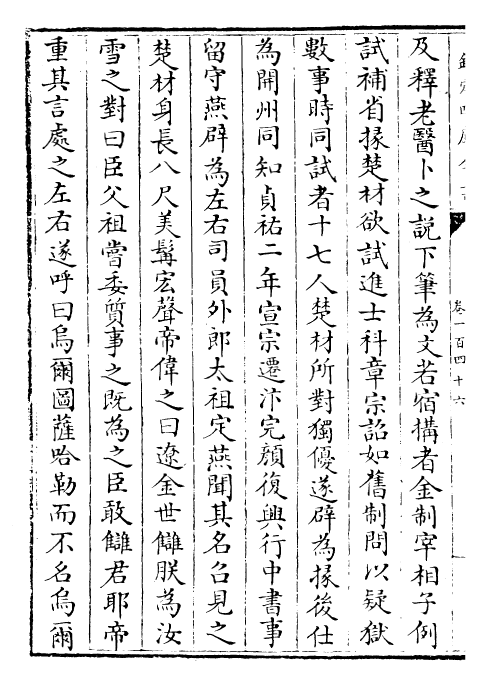 卷一百四十六
及釋老醫卜之説下筆為文若宿搆者金制宰相子例
試補省掾楚材欲試進士科章宗詔如舊制問以疑獄
數事時同試者十七人楚材所對獨優遂辟為掾後仕
為開州同知貞祐二年宣宗遷汴完顔復興行中書事
留守燕辟為左右司員外郎太祖定燕聞其名召見之
楚材身長八尺美髯宏聲帝偉之曰遼金世讎朕為汝
雪之對曰臣父祖嘗委質事之既為之臣敢讎君耶帝
重其言處之左右遂呼曰烏爾圖薩哈勒而不名烏爾